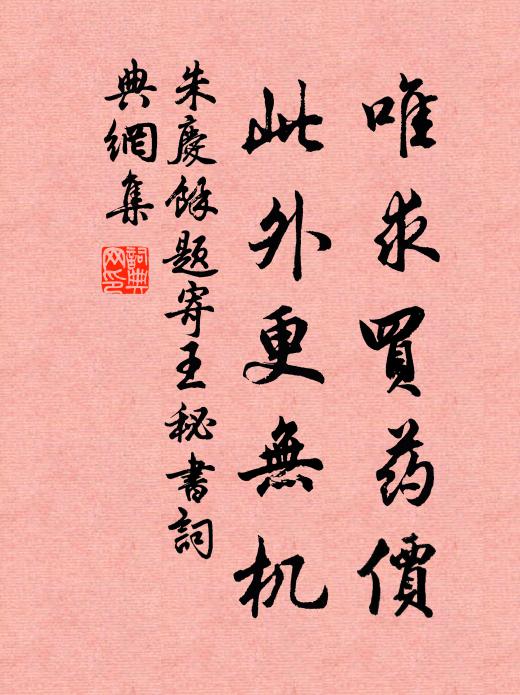 唯求買药價
此外更無机
朱慶餘題寄王秘書詞
典網集
詞典網印